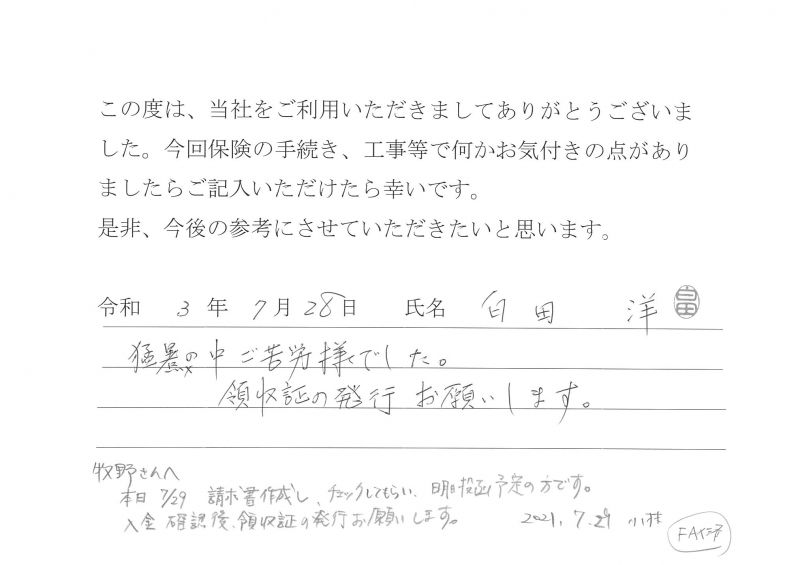 この度は、当社をご利用いただきましてありがとうございま
した。今回保険の手続き、工事等で何かお気付きの点があり
ましたらご記入いただけたら幸いです。
是非、今後の参考にさせていただきたいと思います。
令和 3 年 7 月 28 日 氏名 臼田 洋
猛暑の中ご苦労様でした。
領収証の発行お願いします。
牧野さんへ
本日 7/29 請求書作成し、チェックしてもらい、明日投函予定の方です。
入金確認後、領収証の発行お願いします。 2021.7.29 小林